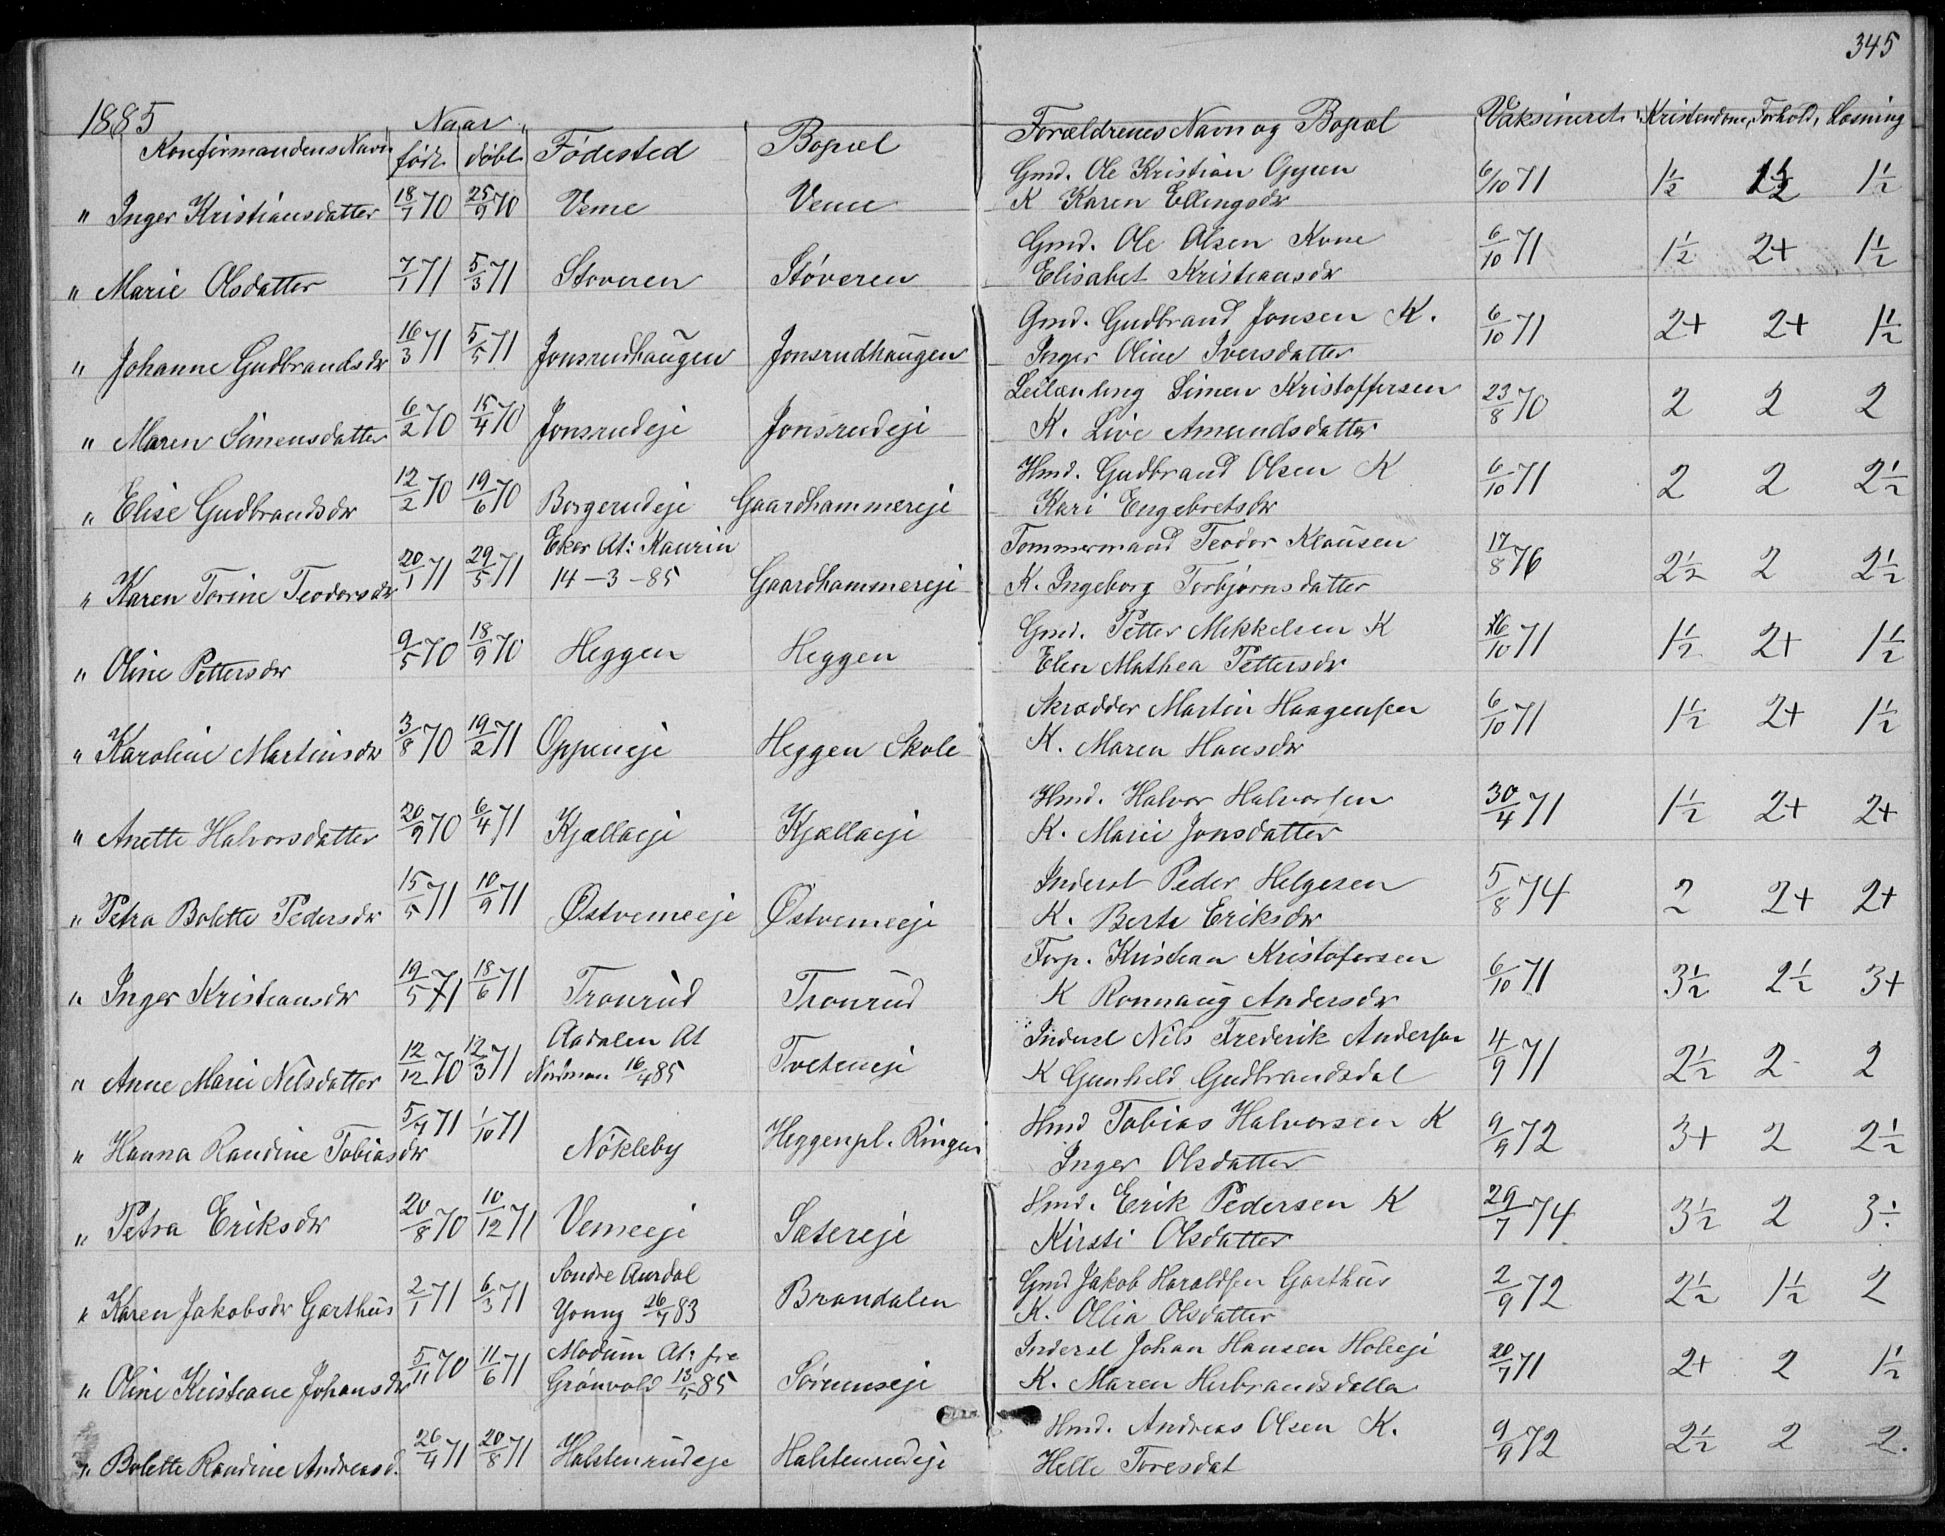 345
1885
Konfirmandens Navn | Naar født | døbt | Fødested | Bopæl | Forældrenes Navn og Bopæl | Vaksineret | Kristendom, Forhold, Læsning
" Inger Kristiansdatter | 18/7 70 | 25/9 70 | Veme | Veme | Gmd. Ole Kristian Oppen
K Karen Ellingsdr | 6/10 71 | 1½ | 1½ | 1½
" Marie Olsdatter | 7/1 71 | 5/3 71 | Støveren | Støveren | Gmd. Ole Olsen Kone
Elisabet Kristiansdr | 6/10 71 | 1½ | 2+ | 1½
" Johanne Gudbrandsdr | 16/3 71 | 5/5 71 | Jonsrudhaugen | Jonsrudhaugen | Gmd. Gudbrand Jonsen K.
Inger Oline Iversdatter | 6/10 71 | 2+ | 2+ | 1½
" Maren Simensdatter | 6/2 70 | 15/4 70 | Jonsrudeje | Jonsrudeje | Leilænding Simen Kristoffersen
K. Live Amundsdatter | 23/8 70 | 2 | 2 | 2
" Elise Gudbrandsdr | 12/2 70 | 19/6 70 | Borgerudeje | Gaardhammereje | Hmd. Gudbrand Olsen K
Kari Engebretsdr | 6/10 71 | 2 | 2 | 2½
" Karen Torine Teodorsdr | 20/1 71 | 29/5 71 | Eker At: Kaurin
14-3-85 | Gaardhammereje | Tømmermand Teodor Klausen
K. Ingeborg Torbjørnsdatter | 17/8 76 | 2½ | 2 | 2½
" Oline Pettersdr | 9/5 70 | 18/9 70 | Heggen | Heggen | Gmd. Petter Mikkelsen K
Elen Mathea Pettersdr | 6/10 71 | 1½ | 2+ | 1½
" Karoline Martinsdr | 3/8 70 | 19/2 71 | Oppeneje | Heggen Skole | Skrædder Martin Haagensen
K. Maren Hansdr | 6/10 71 | 1½ | 2+ | 1½
" Anette Halvorsdatter | 20/9 70 | 6/4 71 | Kjællaeje | Kjællaeje | Hmd. Halvor Halvorsen
K. Marie Jonsdatter | 30/4 71 | 1½ | 2+ | 2+
" Petra Bolette Pedersdr | 15/5 71 | 10/9 71 | Østvemeeje | Østvemeeje | Inderst Peder Helgesen
K. Berte Eriksdr | 5/8 74 | 2 | 2+ | 2+
" Inger Kristiansdr | 19/5 71 | 18/6 71 | Tronrud | Tronrud | Forp. Kristian Kristofersen
K Rønnaug Andersdr | 6/10 71 | 3½ | 2½ | 3+
" Anne Marie Nilsdatter | 12/12 70 | 12/3 71 | Aadalen At
16/4 85 | Tveteneje | Inderst Nils Frederik Andersen
K Gunhild Gudbrandsdat | 4/9 71 | 2½ | 2 | 2
" Hanna Randine Tobiasdr | 5/7 71 | 1/10 71 | Nökleby | Heggenpl. Ringen | Hmd Tobias Halvorsen K
Inger Olsdatter | 9/9 72 | 3+ | 2 | 2½
" Petra Eriksdr | 20/8 70 | 10/12 71 | Vemeeje | Sætereje | Hmd. Erik Pedersen K
Kirsti Olsdatter | 29/7 74 | 3½ | 2 | 3÷
" Karen Jakobsdr Garthus | 2/1 71 | 6/3 71 | Søndre Aurdal
Young 26/7 83 | Brandalen | Gmd Jakob Haraldsen Garthus
K. Ollia Olsdatter | 2/9 72 | 2½ | 1½ | 2
" Oline Kristiane Johansdr | 5/11 70 | 11/6 71 | Modum At: fra
Grønvold 13/5 85 | Sørumseje | Inderst Johan Hansen Holeeje
K. Maren Herbrandsdatter | 20/7 71 | 2+ | 2 | 1½
" Bolette Randine Andreasd. | 26/4 71 | 20/8 71 | Halstenrudeje | Halstenrudeje | Hmd. Andreas Olsen K.
Helle Toresdat | 9/9 72 | 2½ | 2 | 2.